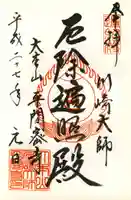 奉拝
川崎大師
厄除遍照殿
大本山平間寺
平成二十七年元旦